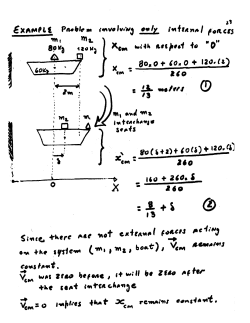 27
EXAMPLE Problem involving only internal forces
m₁ m₂
80Kg 120Kg
60Kg
2m
X_cm with respect to "0"
X_cm = 80.0 + 60.0 + 120.(2)
260
= 12/13 meters ①
m₁ and m₂
interchange
seats
m₂ m₁
δ
0 X
x'_cm = 80(δ+2) + 60(δ) + 120.(δ)
260
= 160 + 260.δ
260
= 8/13 + δ ②
Since there are not external forces acting
on the system (m₁, m₂, boat), V_cm remains
constant.
V_cm was zero before, it will be zero after
the seat interchange
V_cm = 0 implies that x_cm remains constant.